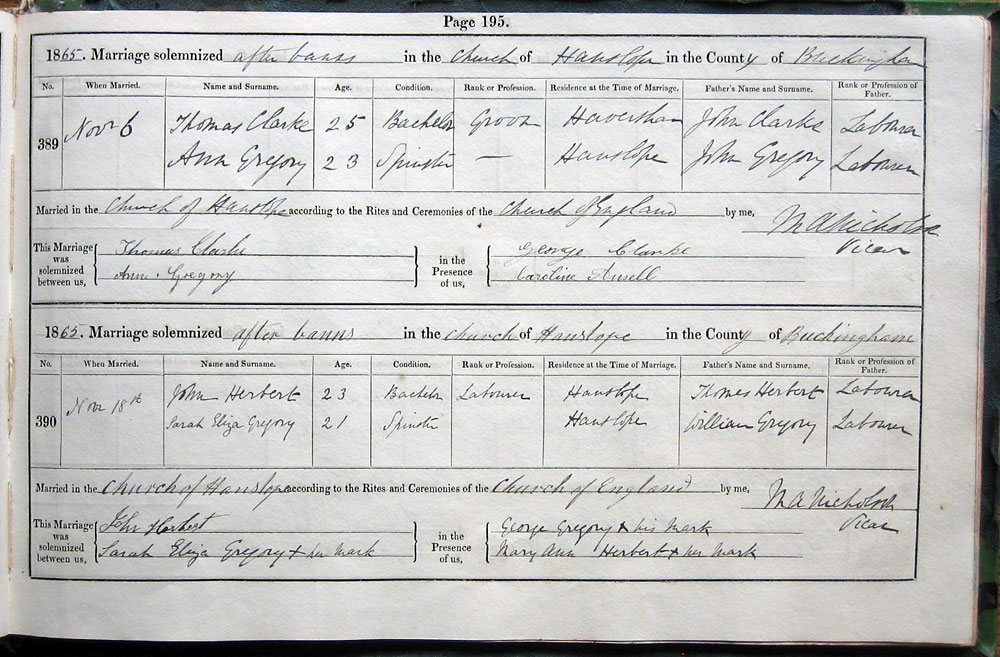 Page 195.
1865. Marriage solemnized after banns in the Church of Hanslope in the County of Buckingham
No. When Married. Name and Surname. Age. Condition. Rank or Profession. Residence at the Time of Marriage. Father's Name and Surname. Rank or Profession of Father.
389 Novr 6 Thomas Clarke 25 Bachelor Groom Haversham John Clarke Labourer
Ann Gregory 23 Spinster — Hanslope John Gregory Labourer
Married in the Church of Hanslope according to the Rites and Ceremonies of the Church of England by me, M A Nicholson
Vicar
This Marriage was solemnized between us, Thomas Clarke in the Presence of us, George Clarke
Ann Gregory Caroline Ansell
1865. Marriage solemnized after banns in the Church of Hanslope in the County of Buckingham
No. When Married. Name and Surname. Age. Condition. Rank or Profession. Residence at the Time of Marriage. Father's Name and Surname. Rank or Profession of Father.
390 Novr 18th John Herbert 23 Bachelor Labourer Hanslope Thomas Herbert Labourer
Sarah Eliza Gregory 21 Spinster Hanslope William Gregory Labourer
Married in the Church of Hanslope according to the Rites and Ceremonies of the Church of England by me, M A Nicholson
Vicar
This Marriage was solemnized between us, John Herbert in the Presence of us, George Gregory x his mark
Sarah Eliza Gregory x her mark Mary Ann Herbert x her mark